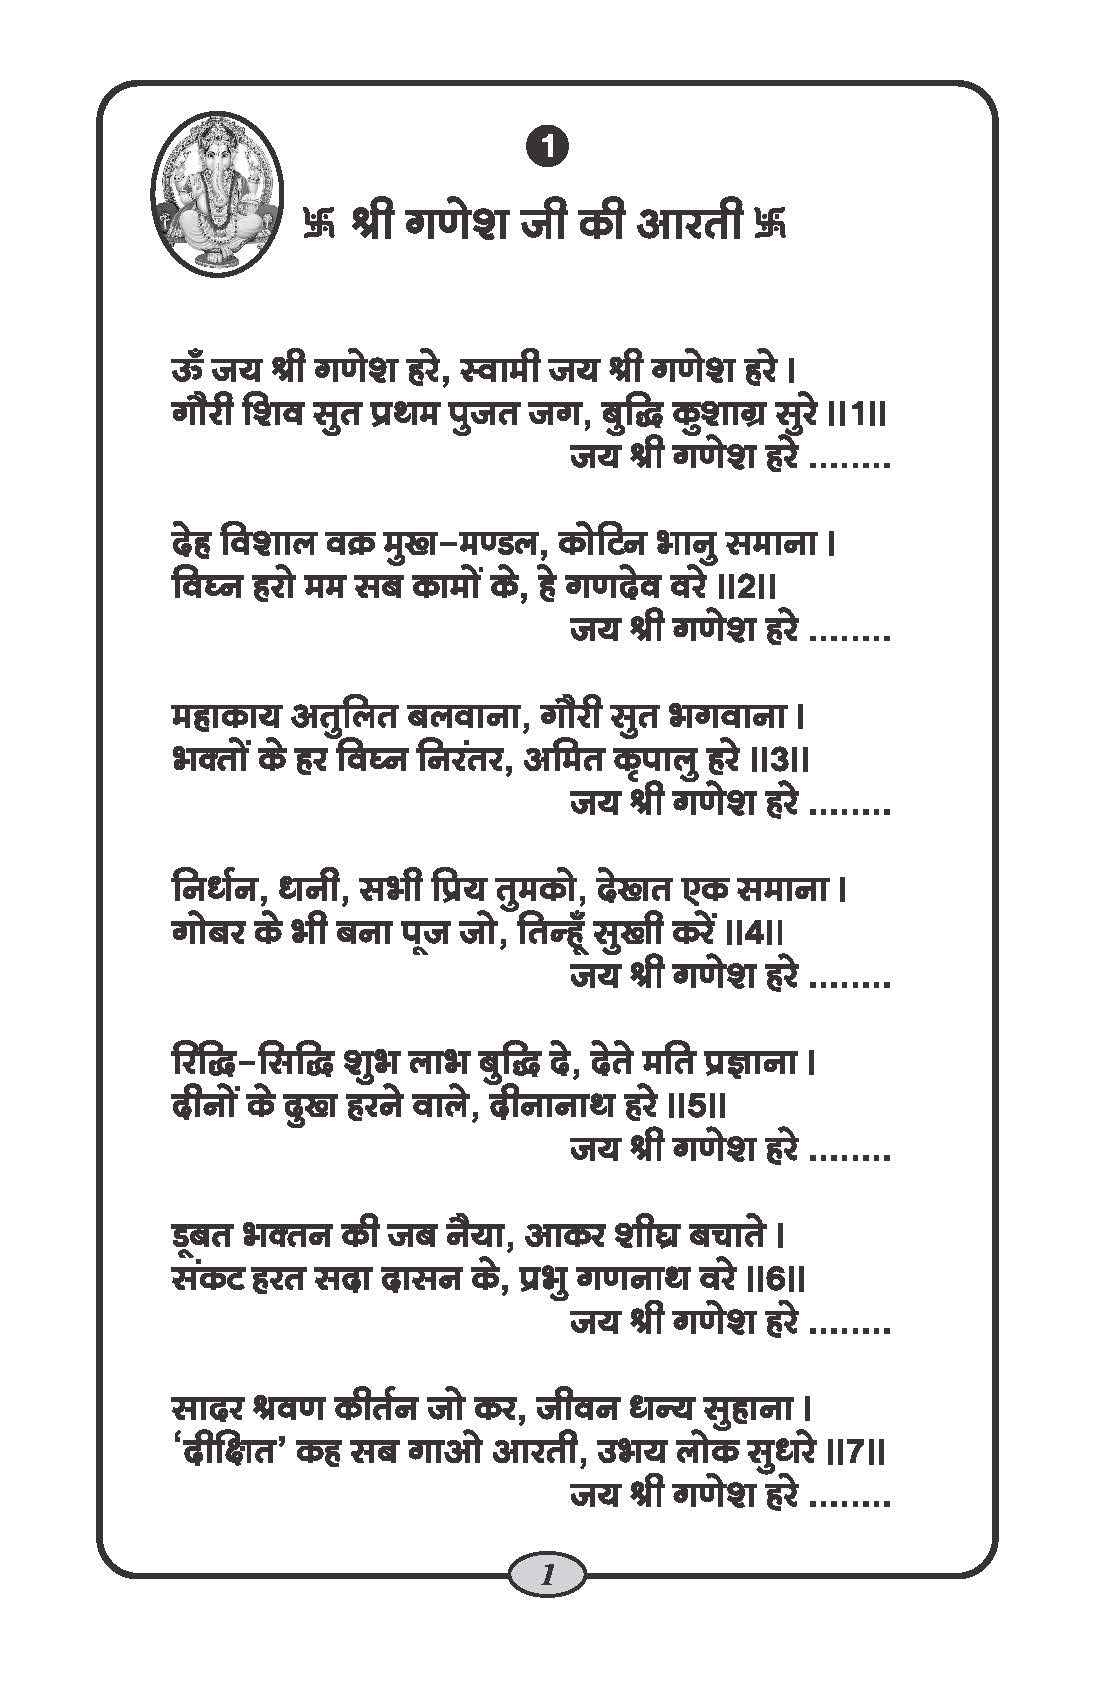 1
卐 श्री गणेश जी की आरती 卐
ॐ जय श्री गणेश हरे, स्वामी जय श्री गणेश हरे ।
गौरी शिव सुत प्रथम पुजत जग, बुद्धि कुशाग्र सुरे ॥1॥
जय श्री गणेश हरे ........
देह विशाल वक्र मुख-मण्डल, कोटिन भानु समाना ।
विघ्न हरो मम सब कामों के, हे गणदेव वरे ॥2॥
जय श्री गणेश हरे ........
महाकाय अतुलित बलवाना, गौरी सुत भगवाना ।
भक्तों के हर विघ्न निरंतर, अमित कृपालु हरे ॥3॥
जय श्री गणेश हरे ........
निर्धन, धनी, सभी प्रिय तुमको, देखत एक समाना ।
गोबर के भी बना पूज जो, तिन्हूँ सुखी करें ॥4॥
जय श्री गणेश हरे ........
रिद्धि-सिद्धि शुभ लाभ बुद्धि दे, देते मति प्रज्ञाना ।
दीनों के दुख हरने वाले, दीनानाथ हरे ॥5॥
जय श्री गणेश हरे ........
डूबत भक्तन की जब नैया, आकर शीघ्र बचाते ।
संकट हरत सदा दासन के, प्रभु गणनाथ वरे ॥6॥
जय श्री गणेश हरे ........
सादर श्रवण कीर्तन जो कर, जीवन धन्य सुहाना ।
‘दीक्षित’ कह सब गाओ आरती, उभय लोक सुधरे ॥7॥
जय श्री गणेश हरे ........
1